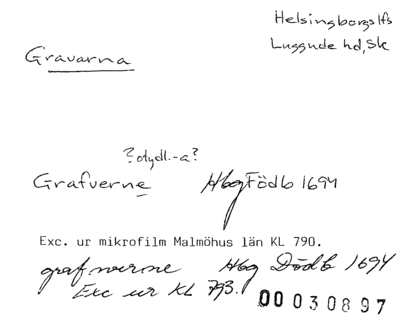 Helsingborgs lfs
Luggude hd, Sk
Gravarna
? otydl. -a?
Grafverne Hbg Födb 1694
Exc. ur mikrofilm Malmöhus län KL 790.
grafwerne Hbg Dödb 1694
Exc ur KL 793.
00030897